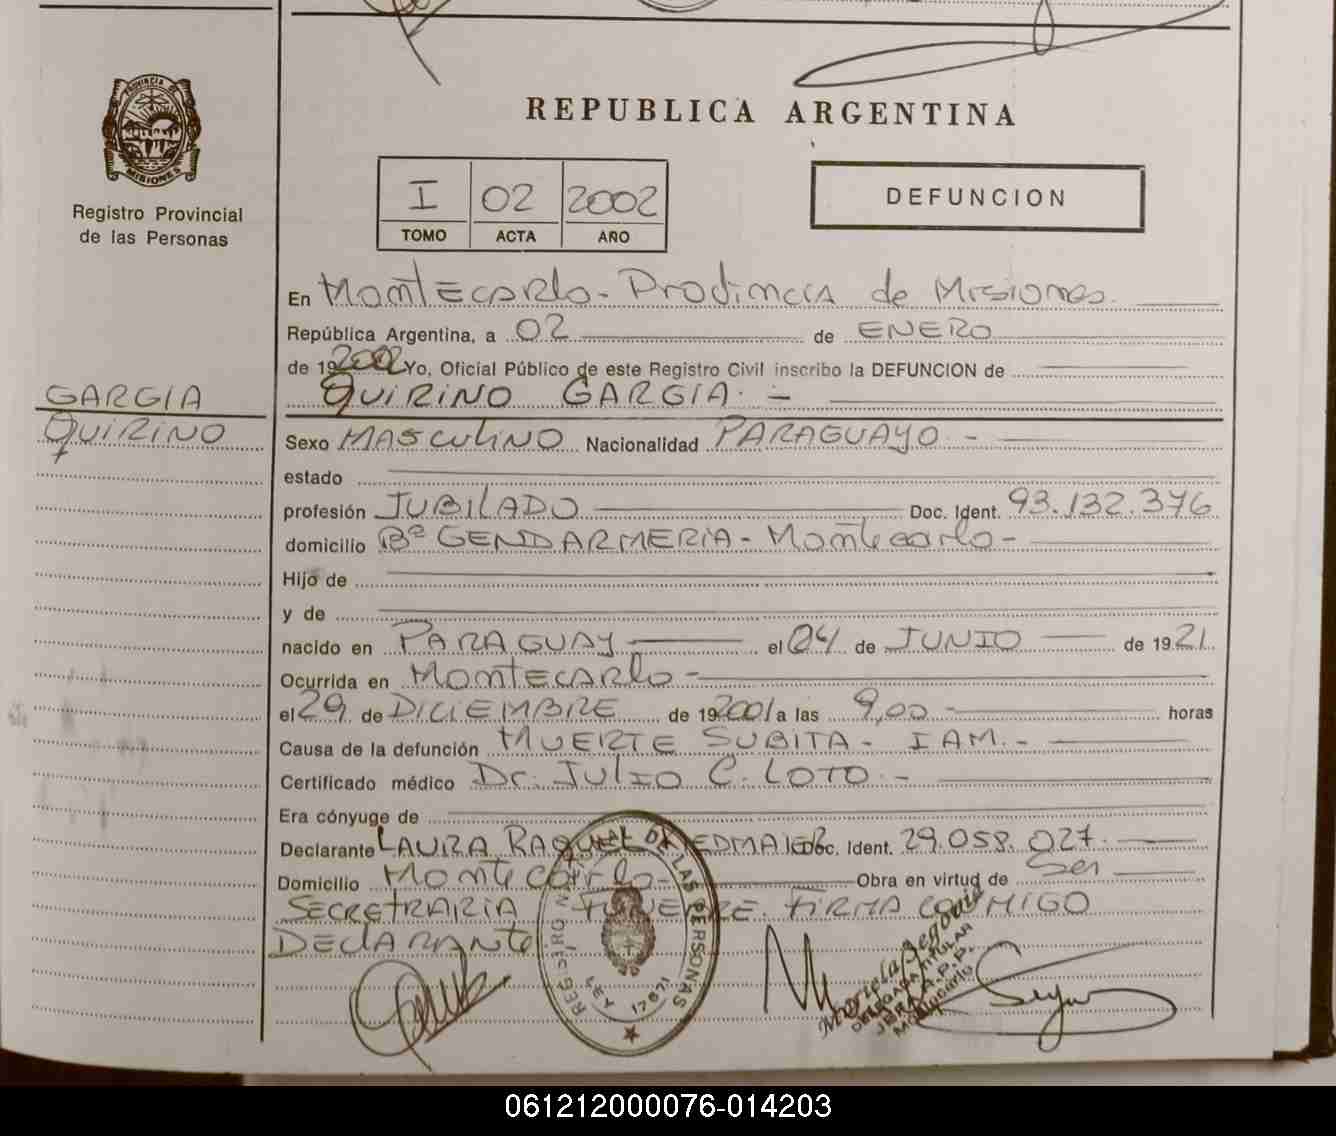 PROVINCIA DE
MISIONES
Registro Provincial
de las Personas
REPUBLICA ARGENTINA
I 02 2002
TOMO ACTA AÑO
DEFUNCION
En Montecarlo - Provincia de Misiones.
República Argentina, a 02 de ENERO
de 192002 Yo, Oficial Público de este Registro Civil inscribo la DEFUNCION de
QUIRINO GARGIA. -
GARGIA
QUIRINO
Sexo MASCULINO Nacionalidad PARAGUAYO -
estado
profesión JUBILADO Doc. Ident. 93.132.376
domicilio Bº GENDARMERIA - Montecarlo -
Hijo de
y de
nacido en PARAGUAY el 04 de JUNIO de 1921
Ocurrida en MONTECARLO -
el 29 de DICIEMBRE de 192001 a las 9,00 - horas
Causa de la defunción MUERTE SUBITA - IAM. -
Certificado médico Dr. Julio C. LOTO. -
Era cónyuge de
Declarante LAURA RAQUEL EDMAIER Doc. Ident. 29.058.027.
Domicilio Montecarlo - Obra en virtud de Ser
SECRETRARIA FUNEBRE. FIRMA CONMIGO
DECLARANTE
REGISTRO NACIONAL DE LAS PERSONAS
LEY 17671
Mariela Begonia
DELEGADA TITULAR
Montecarlo
061212000076-014203